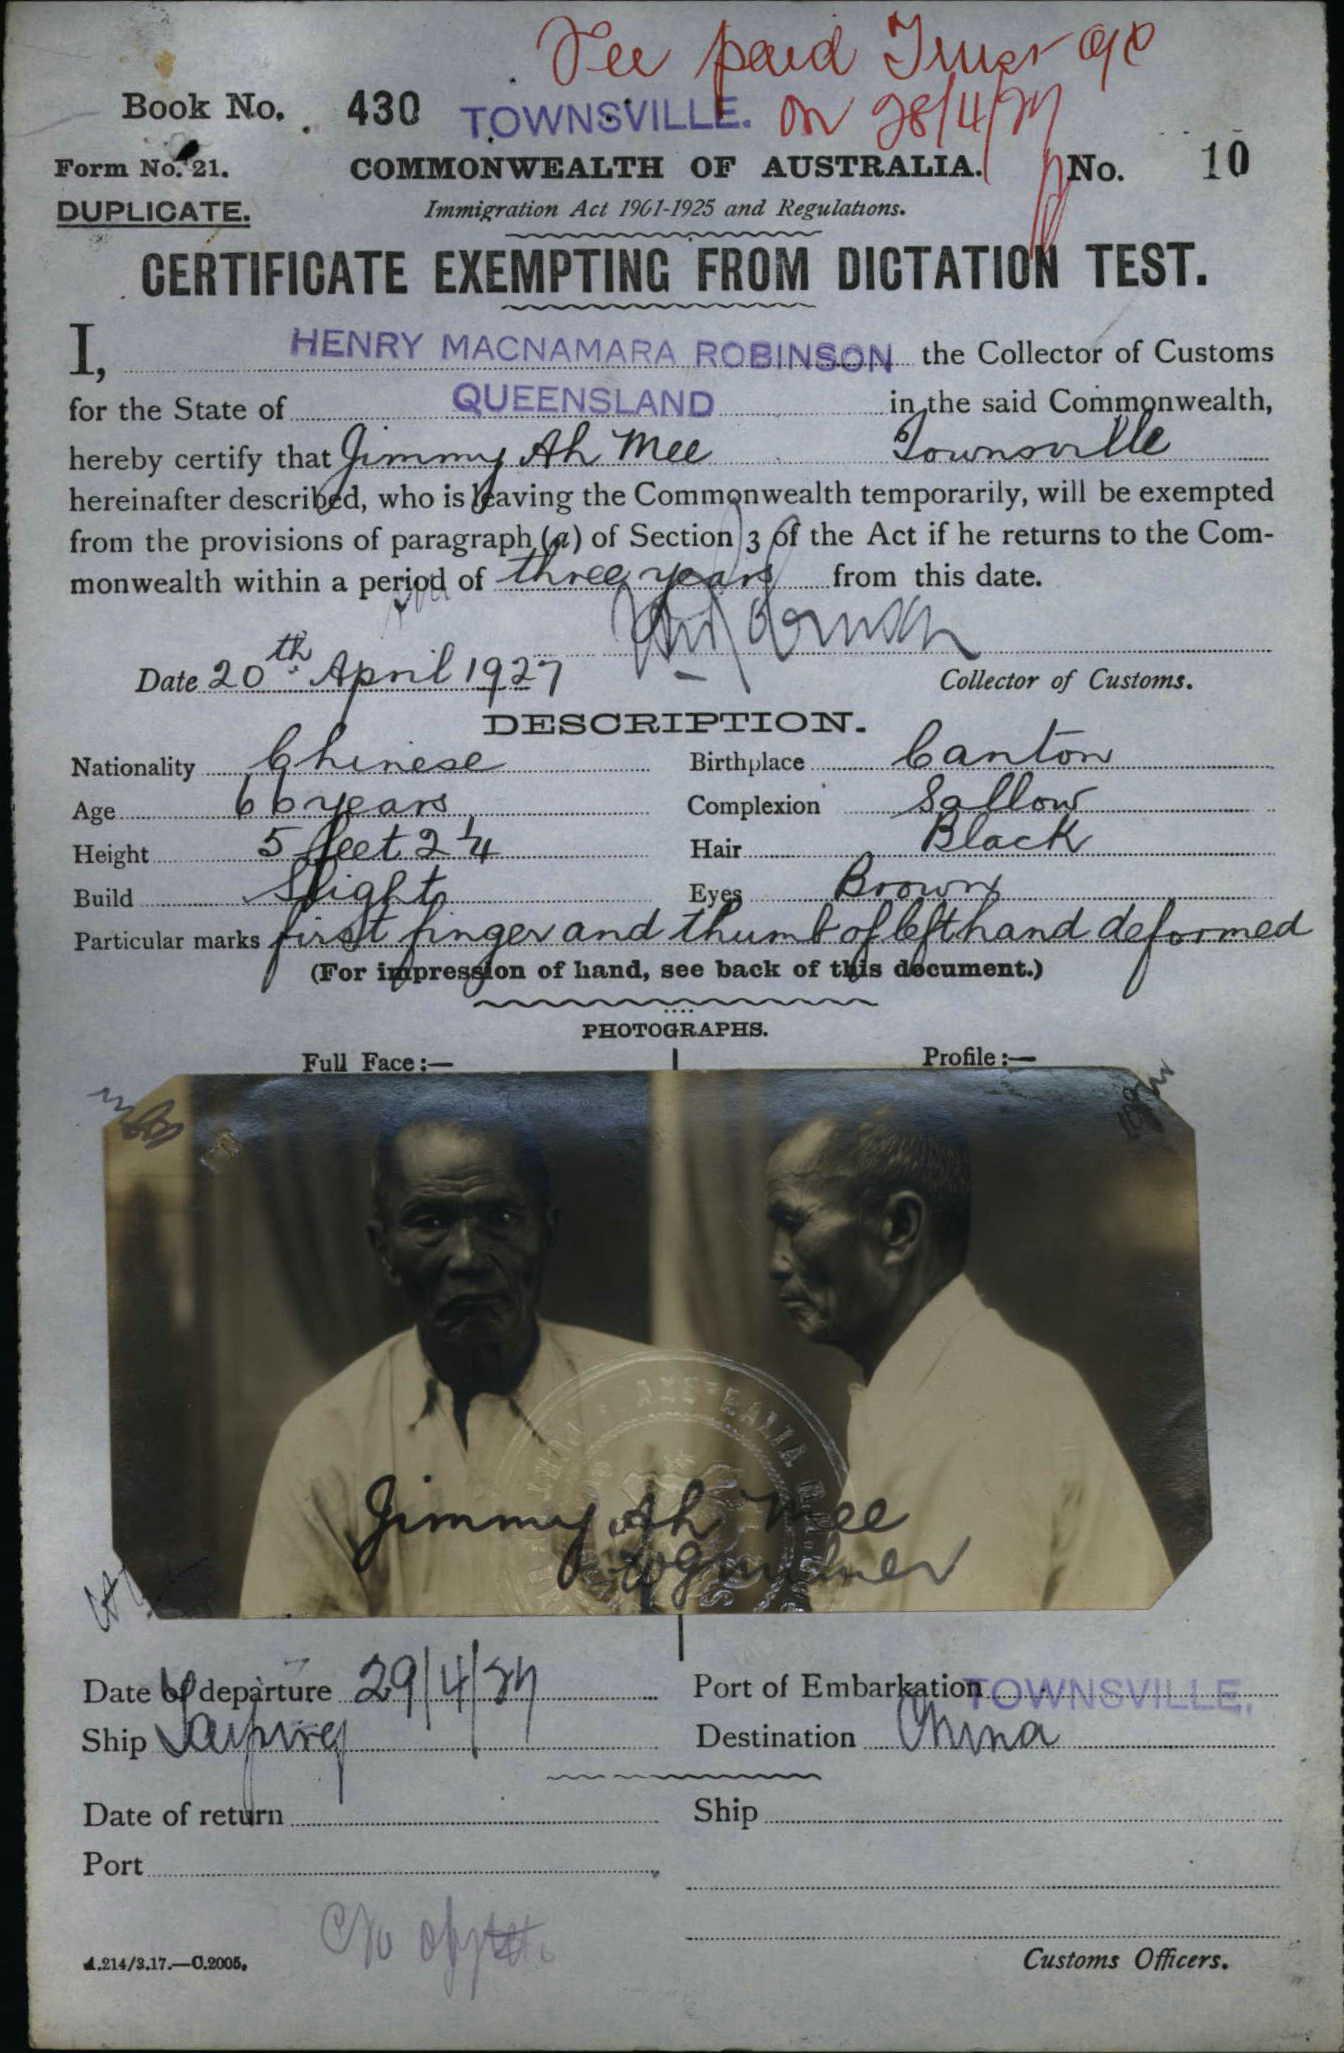 Fee paid Trust a/c
Book No. 430 TOWNSVILLE. on 28/4/27
Form No. 21. COMMONWEALTH OF AUSTRALIA. No. 10
DUPLICATE. Immigration Act 1901-1925 and Regulations.
CERTIFICATE EXEMPTING FROM DICTATION TEST.
I, HENRY MACNAMARA ROBINSON the Collector of Customs
for the State of QUEENSLAND in the said Commonwealth,
hereby certify that Jimmy Ah Mee Townsville
hereinafter described, who is leaving the Commonwealth temporarily, will be exempted
from the provisions of paragraph (a) of Section 3 of the Act if he returns to the Com-
monwealth within a period of three years from this date.
Date 20th April 1927 Collector of Customs.
DESCRIPTION.
Nationality Chinese Birthplace Canton
Age 66 years Complexion Sallow
Height 5 feet 2 1/4 Hair Black
Build Slight Eyes Brown
Particular marks first finger and thumb of left hand deformed
(For impression of hand, see back of this document.)
PHOTOGRAPHS.
Full Face:— Profile:—
Jimmy Ah Mee
Date of departure 29/4/27 Port of Embarkation TOWNSVILLE.
Ship Taiping Destination China
Date of return Ship
Port
A.214/3.17.—C.2005. Customs Officers.